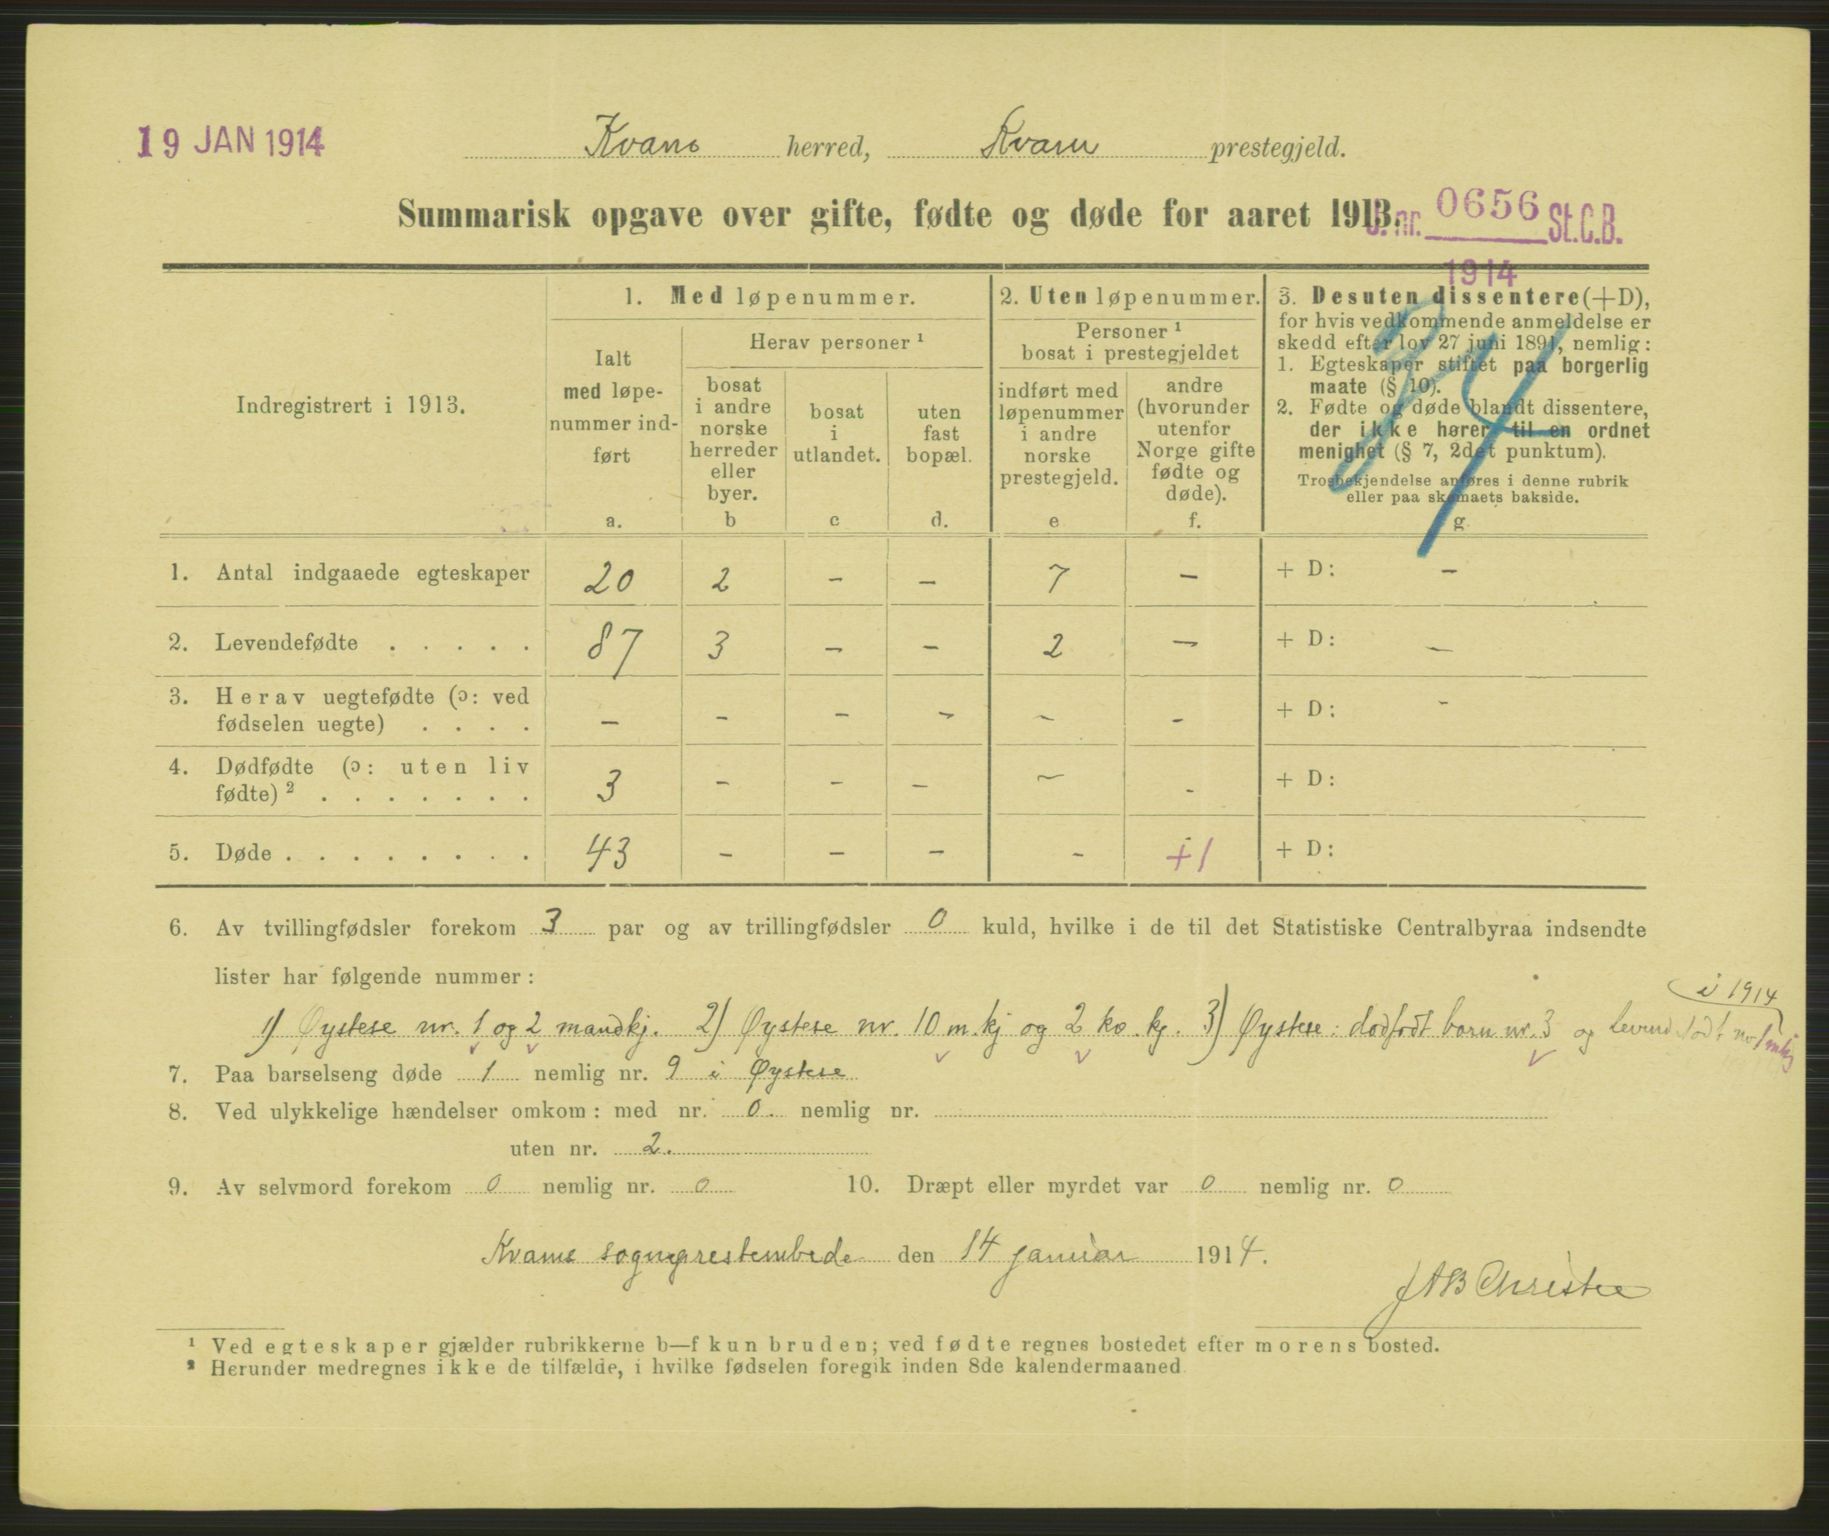 19 JAN 1914
Kvams herred, Kvam prestegjeld.
Summarisk opgave over gifte, fødte og døde for aaret 1913.
J. nr. 0656 St.C.B.
1914
Indregistrert i 1913.
1. Med løpenummer.
Ialt
med løpe-
nummer ind-
ført
a.
Herav personer ¹
bosat
i andre
norske
herreder
eller
byer.
b
bosat
i
utlandet.
c
uten
fast
bopæl.
d.
2. Uten løpenummer.
Personer ¹
bosat i prestegjeldet
indført med
løpenummer
i andre
norske
prestegjeld.
e
andre
(hvorunder
utenfor
Norge gifte
fødte og
døde).
f.
3. Desuten dissentere (+D),
for hvis vedkommende anmeldelse er
skedd efter lov 27 juni 1891, nemlig:
1. Egteskaper stiftet paa borgerlig
maate (§ 10).
2. Fødte og døde blandt dissentere,
der ikke hører til en ordnet
menighet (§ 7, 2det punktum).
Trosbekjendelse anføres i denne rubrik
eller paa skemaets bakside.
g
1. Antal indgaaede egteskaper 20 2 – – 7 – + D: –
2. Levendefødte . . . . . 87 3 – – 2 – + D: –
3. Herav uegtefødte (ɔ: ved
fødselen uegte) . . . . – – – – – – + D: –
4. Dødfødte (ɔ: uten liv
fødte) ² . . . . . . . 3 – – – – - + D:
5. Døde . . . . . . . . . 43 – – – - +1 + D:
6. Av tvillingfødsler forekom 3 par og av trillingfødsler 0 kuld, hvilke i de til det Statistiske Centralbyraa indsendte
lister har følgende nummer:
i 1914
1) Øystese nr. 1 og 2 mandkj. 2) Øystese nr. 10 m.kj og 2 kv. kj. 3) Øystese: dødfødt barn nr. 3 og levend. født nr 1 mkj
7. Paa barselseng døde 1 nemlig nr. 9 i Øystese
8. Ved ulykkelige hændelser omkom: med nr. 0. nemlig nr.
uten nr. 2.
9. Av selvmord forekom 0 nemlig nr. 0 10. Dræpt eller myrdet var 0 nemlig nr. 0
Kvams sogneprestembede den 14 januar 1914.
JAB Christie
¹ Ved egteskaper gjælder rubrikkerne b—f kun bruden; ved fødte regnes bostedet efter morens bosted.
² Herunder medregnes ikke de tilfælde, i hvilke fødselen foregik inden 8de kalendermaaned